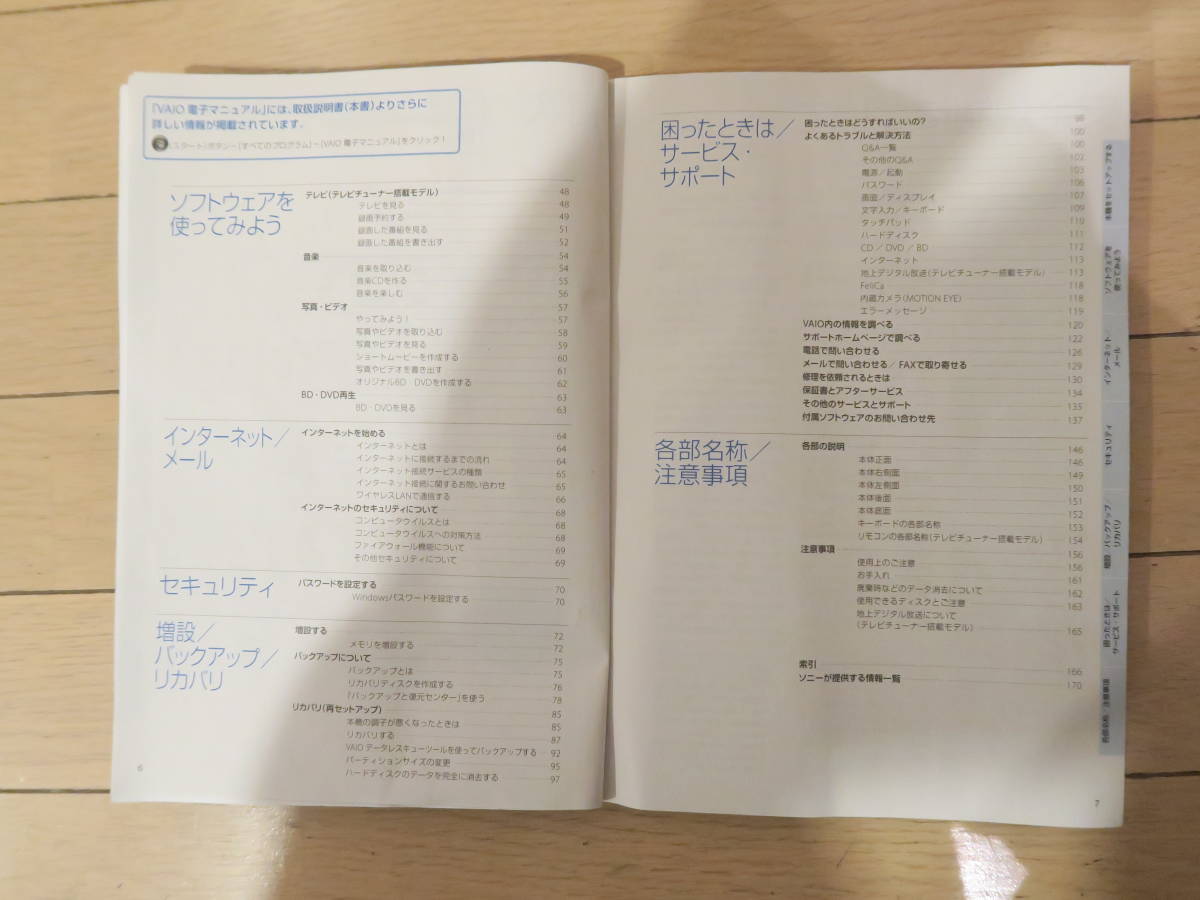 「VAIO 電子マニュアル」には、取扱説明書(本書)よりさらに
詳しい情報が掲載されています。
(スタート)ボタン－[すべてのプログラム]－[VAIO 電子マニュアル]をクリック！
ソフトウェアを
使ってみよう
テレビ(テレビチューナー搭載モデル) 48
テレビを見る 48
録画予約する 49
録画した番組を見る 51
録画した番組を書き出す 52
音楽 54
音楽を取り込む 54
音楽CDを作る 55
音楽を楽しむ 56
写真・ビデオ 57
やってみよう！ 57
写真やビデオを取り込む 58
写真やビデオを見る 59
ショートムービーを作成する 60
写真やビデオを書き出す 61
オリジナルBD DVDを作成する 62
BD・DVD再生 63
BD・DVDを見る 63
インターネット／
メール
インターネットを始める 64
インターネットとは 64
インターネットに接続するまでの流れ 64
インターネット接続サービスの種類 65
インターネット接続に関するお問い合わせ 65
ワイヤレスLANで通信する 66
インターネットのセキュリティについて 68
コンピュータウイルスとは 68
コンピュータウイルスへの対策方法 68
ファイアウォール機能について 69
その他セキュリティについて 69
セキュリティ
パスワードを設定する 70
Windowsパスワードを設定する 70
増設／
バックアップ／
リカバリ
増設する 72
メモリを増設する 72
バックアップについて 75
バックアップとは 75
リカバリディスクを作成する 76
「バックアップと復元センター」を使う 78
リカバリ(再セットアップ) 85
本機の調子が悪くなったときは 85
リカバリする 87
VAIO データレスキューツールを使ってバックアップする 92
パーティションサイズの変更 95
ハードディスクのデータを完全に消去する 97
6
困ったときは／
サービス・
サポート
困ったときはどうすればいいの？ 98
よくあるトラブルと解決方法 100
Q&A一覧 100
その他のQ&A 102
電源／起動 103
パスワード 106
画面／ディスプレイ 107
文字入力／キーボード 109
タッチパッド 110
ハードディスク 111
CD／DVD／BD 112
インターネット 113
地上デジタル放送(テレビチューナー搭載モデル) 113
FeliCa 118
内蔵カメラ(MOTION EYE) 118
エラーメッセージ 119
VAIO内の情報を調べる 120
サポートホームページで調べる 122
電話で問い合わせる 126
メールで問い合わせる／FAXで取り寄せる 129
修理を依頼されるときは 130
保証書とアフターサービス 134
その他のサービスとサポート 135
付属ソフトウェアのお問い合わせ先 137
各部名称／
注意事項
各部の説明 146
本体正面 146
本体右側面 149
本体左側面 150
本体後面 151
本体底面 152
キーボードの各部名称 153
リモコンの各部名称(テレビチューナー搭載モデル) 154
注意事項 156
使用上のご注意 156
お手入れ 161
廃棄時などのデータ消去について 162
使用できるディスクとご注意 163
地上デジタル放送について
(テレビチューナー搭載モデル) 165
索引 166
ソニーが提供する情報一覧 170
本機をセットアップする
ソフトウェアを
使ってみよう
インターネット／
メール
セキュリティ
増設／バックアップ／
リカバリ
困ったときは／
サービス・サポート
各部名称／注意事項
7